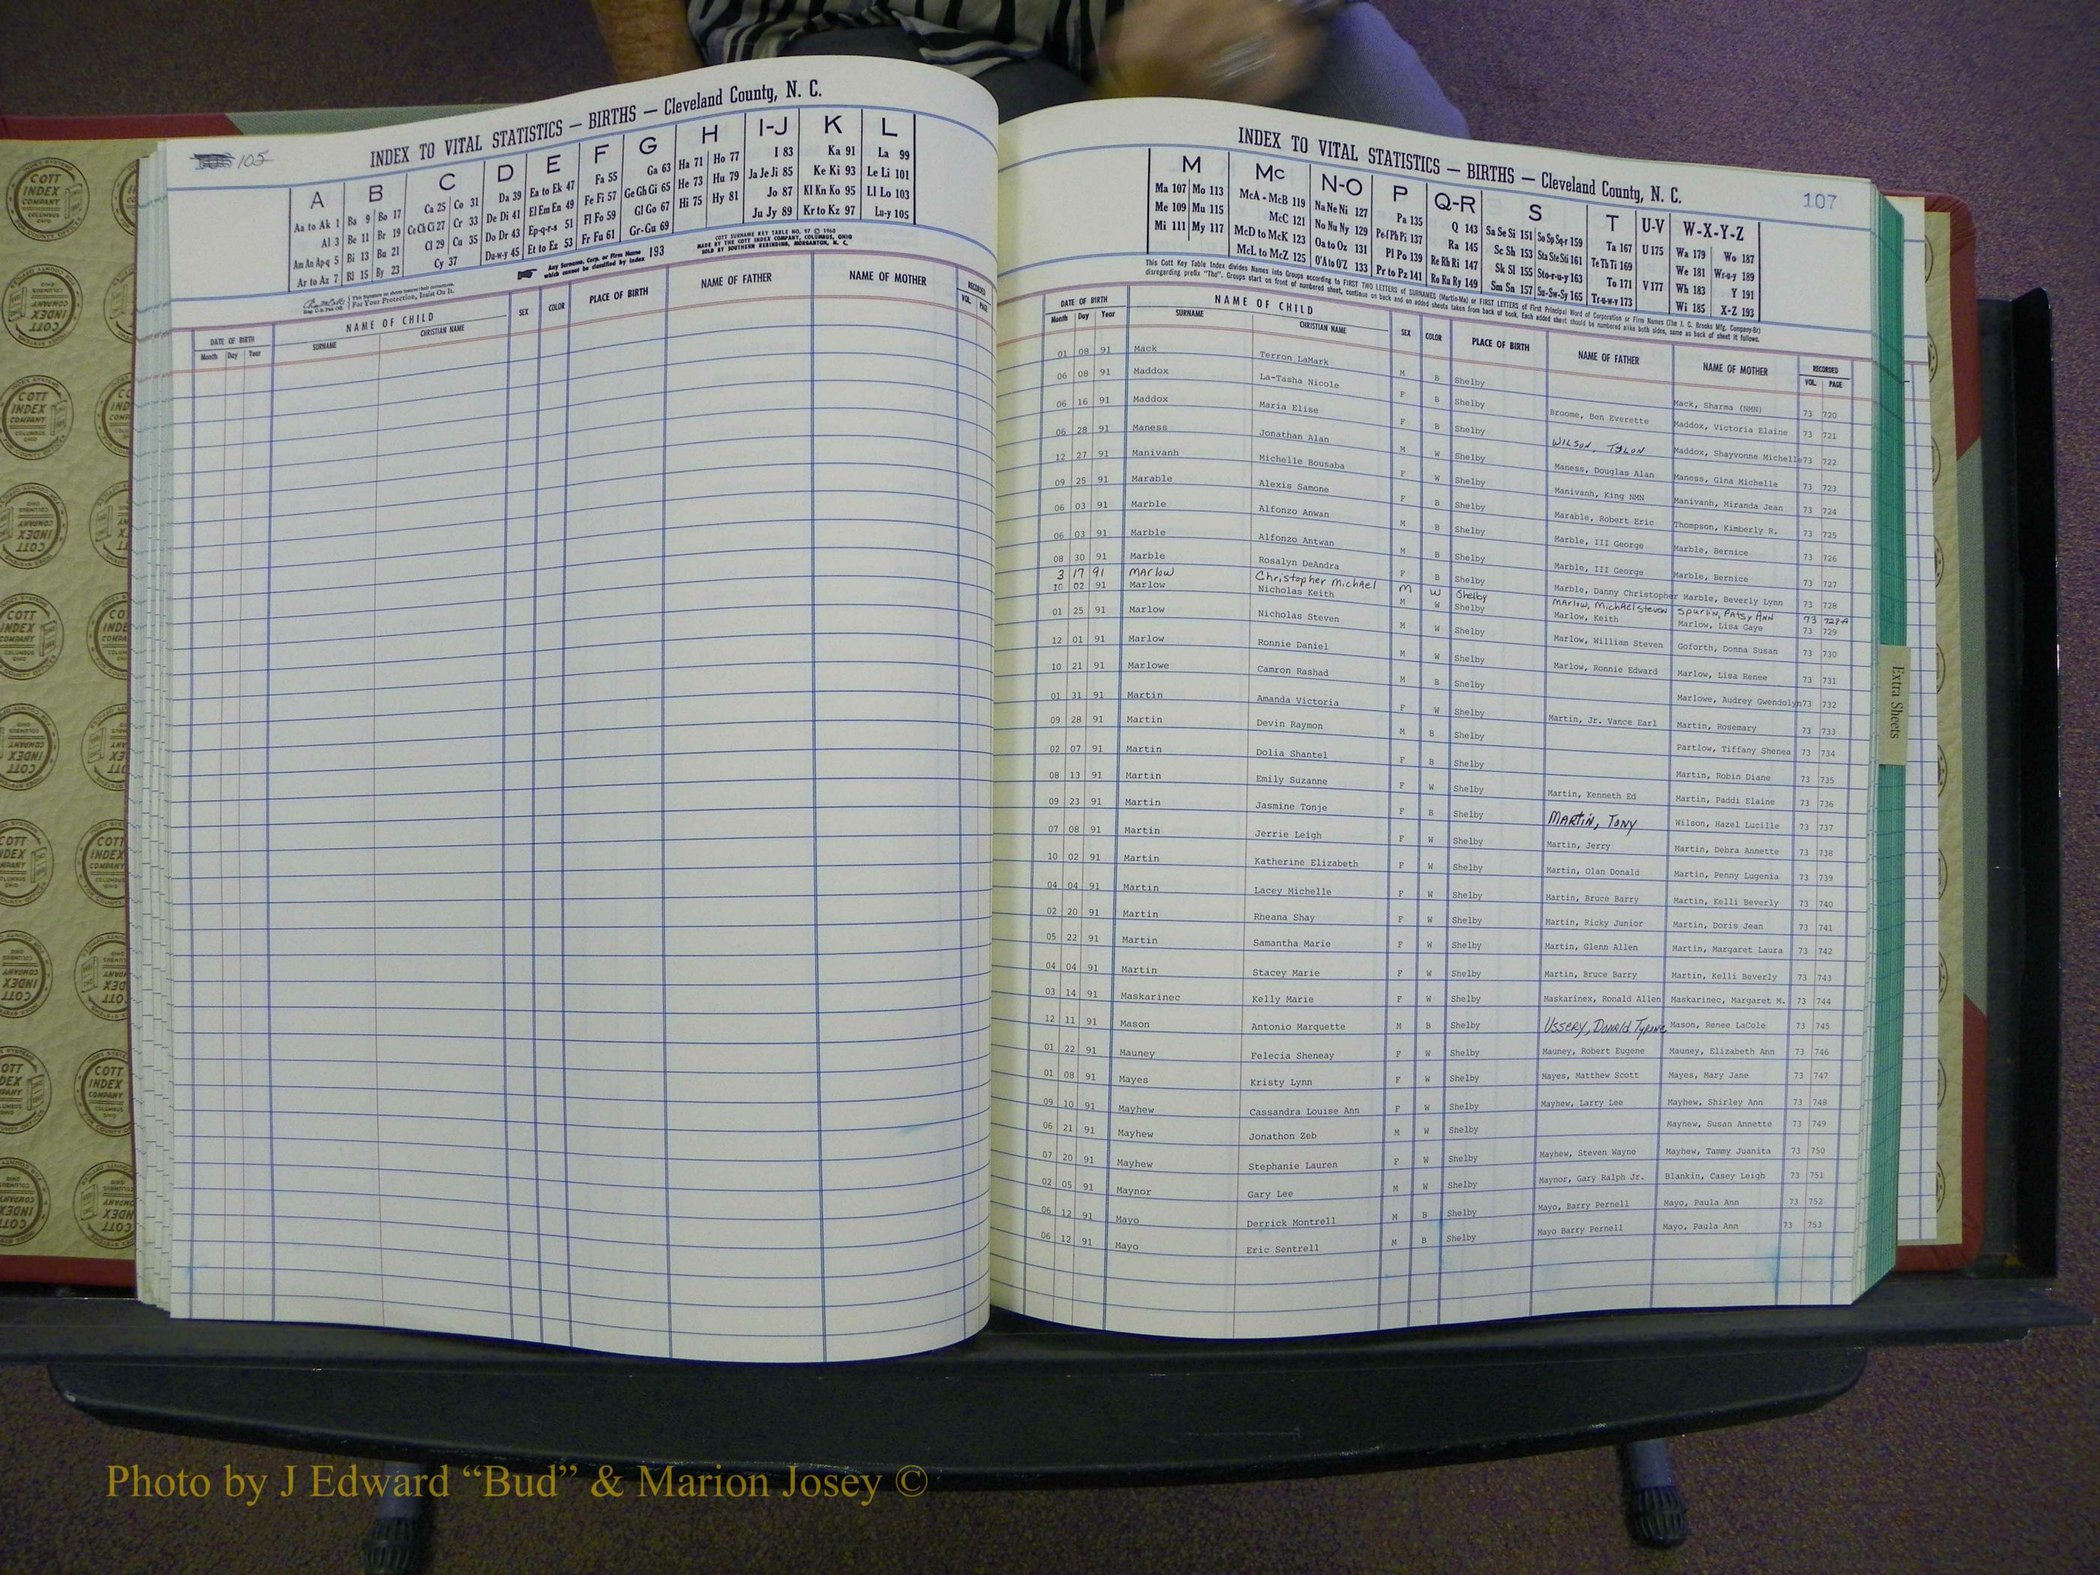 105
INDEX TO VITAL STATISTICS — BIRTHS — Cleveland County, N. C.
A B C D E F G H I-J K L
Aa to Ak 1 Ba 9 Bo 17 Ca 25 Co 31 Da 39 Ea to Ek 47 Fa 55 Ga 63 Ha 71 Ho 77 I 83 Ka 91 La 99
Al 3 Be 11 Br 19 Ce Ch Ci 27 Cr 33 De Di 41 El Em En 49 Fe Fi 57 Ge Gh Gi 65 He 73 Hu 79 Ja Je Ji 85 Ke Ki 93 Le Li 101
Am An Ap-q 5 Bi 13 Bu 21 Cl 29 Cu 35 Do Dr 43 Ep-q-r-s 51 Fl Fo 59 Gl Go 67 Hi 75 Hy 81 Jo 87 Kl Kn Ko 95 Ll Lo 103
Ar to Az 7 Bl 15 By 23 Cy 37 Du-w-y 45 Et to Ez 53 Fr Fu 61 Gr-Gu 69 Ju Jy 89 Kr to Kz 97 Lu-y 105
Any Surname, Corp. or Firm Name which cannot be classified by index 193
COTT SURNAME KEY TABLE NO. 97 © 1960
MADE BY THE COTT INDEX COMPANY, COLUMBUS, OHIO
SOLD BY SOUTHERN REBINDING, MORGANTON, N. C.
For Your Protection, Insist On It.
DATE OF BIRTH NAME OF CHILD SEX COLOR PLACE OF BIRTH NAME OF FATHER NAME OF MOTHER RECORDED
Month Day Year SURNAME CHRISTIAN NAME VOL. PAGE
INDEX TO VITAL STATISTICS — BIRTHS — Cleveland County, N. C.
107
M Mc N-O P Q-R S T U-V W-X-Y-Z
Ma 107 Mo 113 McA - McB 119 Na Ne Ni 127 Pa 135 Q 143 Sa Se Si 151 So Sp Sq-r 159 Ta 167 U 175 Wa 179 Wo 187
Me 109 Mu 115 McC 121 No Nu Ny 129 Pe-f Ph Pi 137 Ra 145 Sc Sh 153 Sta Ste Sti 161 Te Th Ti 169 We 181 Wr-u-y 189
Mi 111 My 117 McD to McK 123 Oa to Oz 131 Pl Po 139 Re Rh Ri 147 Sk Sl 155 Sto-r-u-y 163 To 171 V 177 Wh 183 Y 191
McL to McZ 125 O'A to O'Z 133 Pr to Pz 141 Ro Ru Ry 149 Sm Sn 157 Su-Sw-Sy 165 Tr-u-w-y 173 Wi 185 X-Z 193
This Cott Key Table Index divides Names into Groups according to FIRST TWO LETTERS of SURNAMES (Martin-Ma) or FIRST LETTERS of First Principal Word of Corporation or Firm Names (The J. C. Brooks Mfg. Company-Br)
disregarding prefix "The". Groups start on front of numbered sheet, continue on back and on added sheets taken from back of book. Each added sheet should be numbered alike both sides, same as back of sheet it follows.
DATE OF BIRTH NAME OF CHILD SEX COLOR PLACE OF BIRTH NAME OF FATHER NAME OF MOTHER RECORDED
Month Day Year SURNAME CHRISTIAN NAME VOL. PAGE
01 08 91 Mack Terron LaMark M B Shelby Mack, Sharma (NMN) 73 720
06 08 91 Maddox La-Tasha Nicole F B Shelby Broome, Ben Everette Maddox, Victoria Elaine 73 721
06 16 91 Maddox Maria Elise F B Shelby Wilson, Tylon Maddox, Shayvonne Michelle 73 722
06 28 91 Maness Jonathan Alan M W Shelby Maness, Douglas Alan Maness, Gina Michelle 73 723
12 27 91 Manivanh Michelle Bousaba F W Shelby Manivanh, King NMN Manivanh, Miranda Jean 73 724
09 25 91 Marable Alexis Samone F B Shelby Marable, Robert Eric Thompson, Kimberly R. 73 725
06 03 91 Marble Alfonzo Anwan M B Shelby Marble, III George Marble, Bernice 73 726
06 03 91 Marble Alfonzo Antwan M B Shelby Marble, III George Marble, Bernice 73 727
08 30 91 Marble Rosalyn DeAndra F B Shelby Marble, Danny Christopher Marble, Beverly Lynn 73 728
3 17 91 Marlow Christopher Michael M W Shelby Marlow, Michael Steven Spurlin, Patsy Ann 73 728-A
10 02 91 Marlow Nicholas Keith M W Shelby Marlow, Keith Marlow, Lisa Gaye 73 729
01 25 91 Marlow Nicholas Steven M W Shelby Marlow, William Steven Goforth, Donna Susan 73 730
12 01 91 Marlow Ronnie Daniel M W Shelby Marlow, Ronnie Edward Marlow, Lisa Renee 73 731
10 21 91 Marlowe Camron Rashad M B Shelby Marlowe, Audrey Gwendolyn 73 732
01 31 91 Martin Amanda Victoria F W Shelby Martin, Jr. Vance Earl Martin, Rosemary 73 733
09 28 91 Martin Devin Raymon M B Shelby Partlow, Tiffany Shenea 73 734
02 07 91 Martin Dolia Shantel F B Shelby Martin, Robin Diane 73 735
08 13 91 Martin Emily Suzanne F W Shelby Martin, Kenneth Ed Martin, Paddi Elaine 73 736
09 23 91 Martin Jasmine Tonje F B Shelby Martin, Tony Wilson, Hazel Lucille 73 737
07 08 91 Martin Jerrie Leigh F W Shelby Martin, Jerry Martin, Debra Annette 73 738
10 02 91 Martin Katherine Elizabeth F W Shelby Martin, Olan Donald Martin, Penny Lugenia 73 739
04 04 91 Martin Lacey Michelle F W Shelby Martin, Bruce Barry Martin, Kelli Beverly 73 740
02 20 91 Martin Rheana Shay F W Shelby Martin, Ricky Junior Martin, Doris Jean 73 741
05 22 91 Martin Samantha Marie F W Shelby Martin, Glenn Allen Martin, Margaret Laura 73 742
04 04 91 Martin Stacey Marie F W Shelby Martin, Bruce Barry Martin, Kelli Beverly 73 743
03 14 91 Maskarinec Kelly Marie F W Shelby Maskarinex, Ronald Allen Maskarinec, Margaret M. 73 744
12 11 91 Mason Antonio Marquette M B Shelby Ussery, Donald Tyrone Mason, Renee LaCole 73 745
01 22 91 Mauney Felecia Sheneay F W Shelby Mauney, Robert Eugene Mauney, Elizabeth Ann 73 746
01 08 91 Mayes Kristy Lynn F W Shelby Mayes, Matthew Scott Mayes, Mary Jane 73 747
09 10 91 Mayhew Cassandra Louise Ann F W Shelby Mayhew, Larry Lee Mayhew, Shirley Ann 73 748
06 21 91 Mayhew Jonathon Zeb M W Shelby Mayhew, Susan Annette 73 749
07 20 91 Mayhew Stephanie Lauren F W Shelby Mayhew, Steven Wayne Mayhew, Tammy Juanita 73 750
02 05 91 Maynor Gary Lee M W Shelby Maynor, Gary Ralph Jr. Blankin, Casey Leigh 73 751
06 12 91 Mayo Derrick Montrell M B Shelby Mayo, Barry Pernell Mayo, Paula Ann 73 752
06 12 91 Mayo Eric Sentrell M B Shelby Mayo Barry Pernell Mayo, Paula Ann 73 753
Extra Sheets
COTT INDEX COMPANY
Photo by J Edward “Bud” & Marion Josey ©